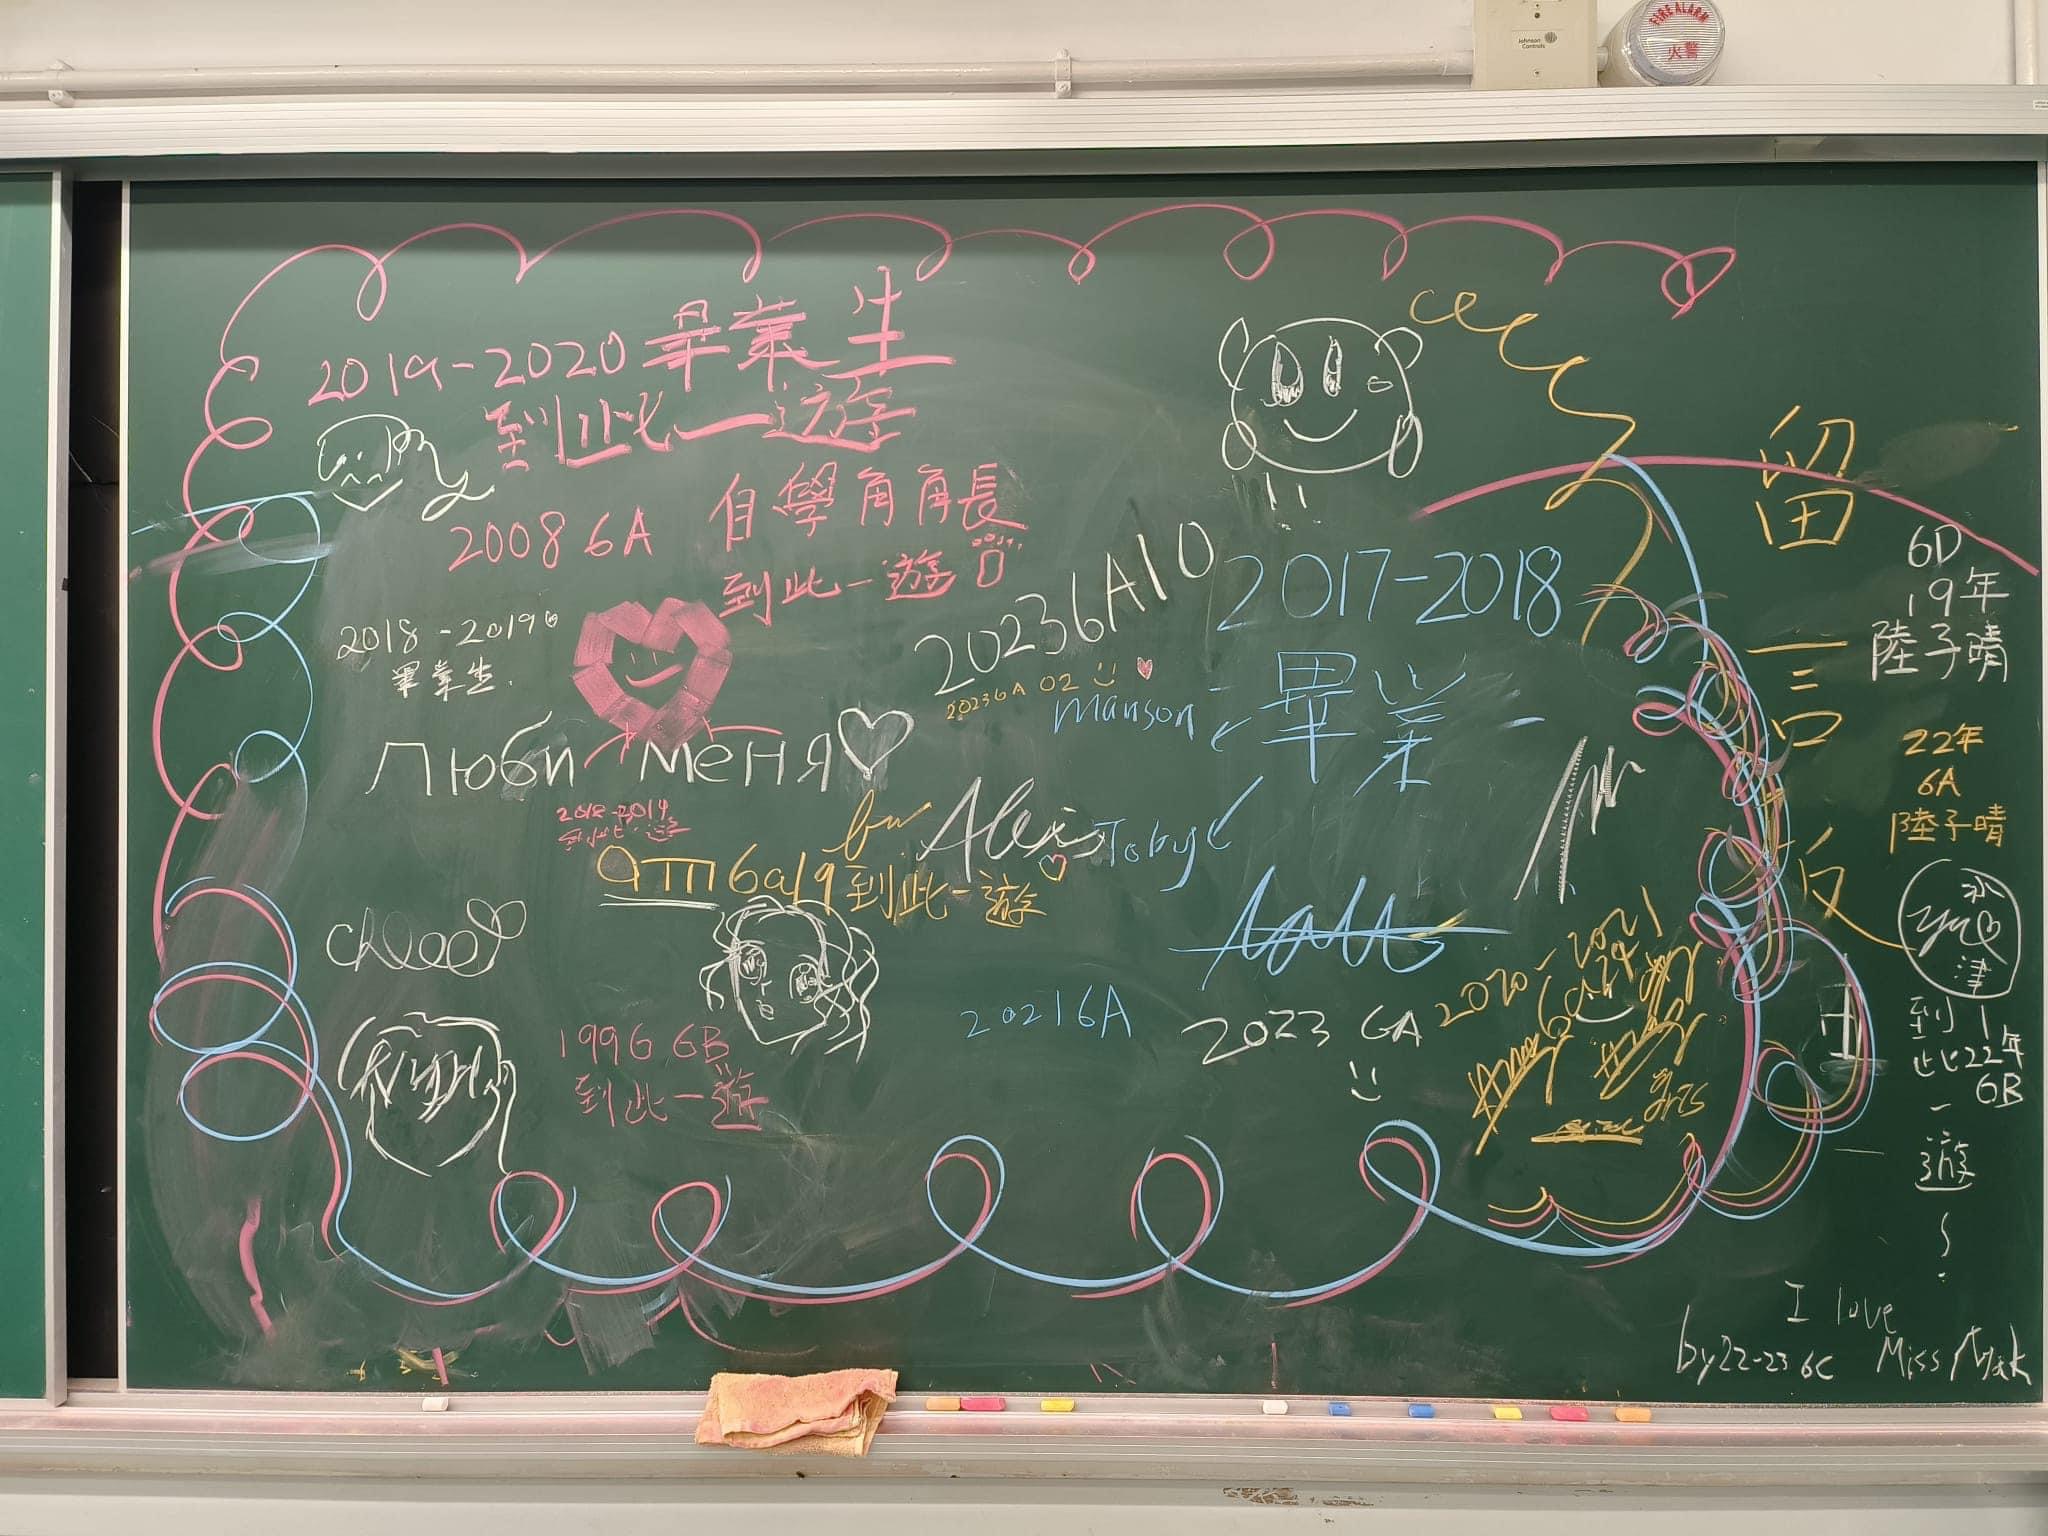 Johnson Controls
FIRE ALARM
火警
2019-2020 畢業生
到此一遊
2008 6A 自學角角長
到此一遊
2018-2019
畢業生.
20236A10
20236A 02
Manson
2017-2018
畢業
Люби меня
2018-2019
到此一遊
by Alexis
Toby
6a19到此一遊
chloe
1996 6B
到此一遊
20216A
2023 6A
2020-2021
6a24
留言板
6D
19年
陸子晴
22年
6A
陸子晴
永
津
到此一遊
22年
6B
I love
Miss Mak
by22-23 6C